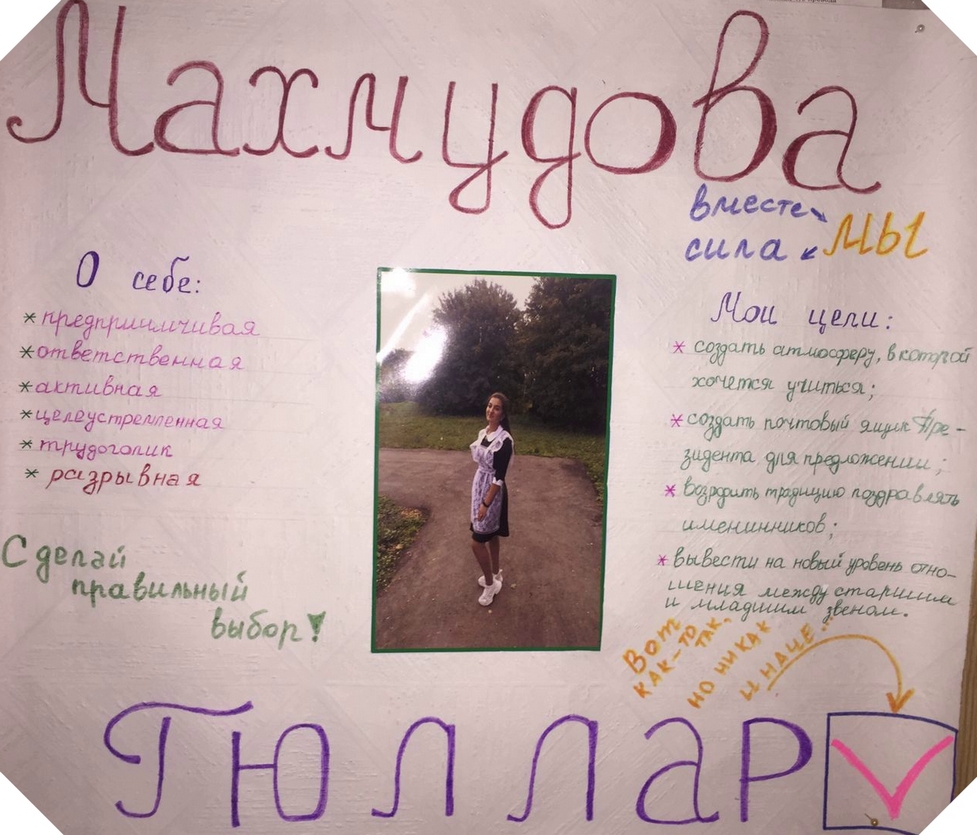 Махмудова
вместе
сила
МЫ
О себе:
* предприимчивая
* ответственная
* активная
* целеустремленная
* трудоголик
* разрывная
Сделай
правильный
выбор!
Мои цели:
* создать атмосферу, в которой
хочется учиться;
* создать почтовый ящик Пре-
зидента для предложении;
* возродить традицию поздравлять
именинников;
* вывести на новый уровень отно-
шения между старшим
и младшим звеном.
Вот
как-то так.
но никак
иначе.
Гюллар